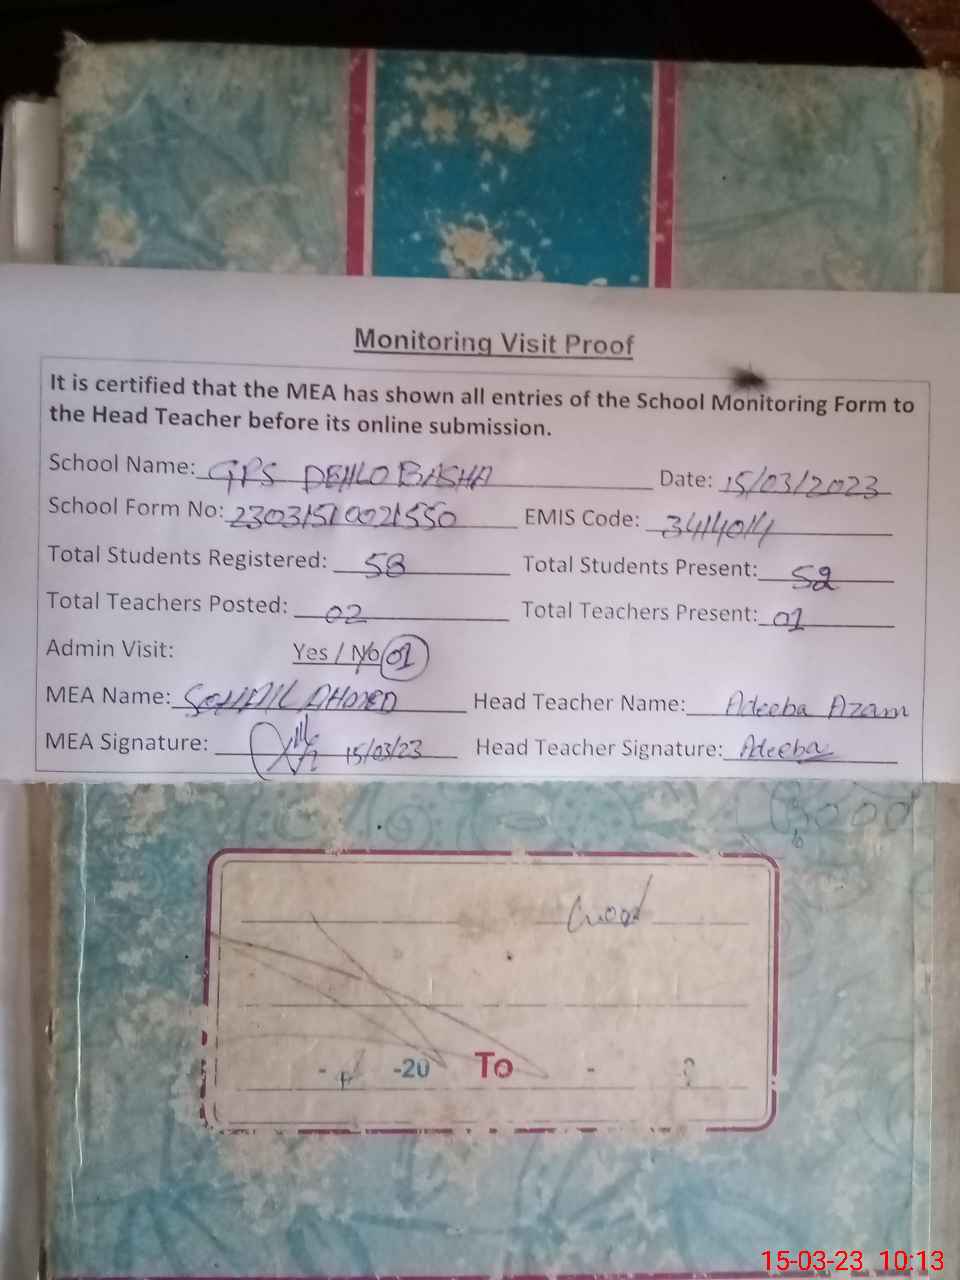 Monitoring Visit Proof
It is certified that the MEA has shown all entries of the School Monitoring Form to
the Head Teacher before its online submission.
School Name: GPS DEHLO BASHA Date: 15/03/2023
School Form No: 23031510021550 EMIS Code: 3414014
Total Students Registered: 58 Total Students Present: 52
Total Teachers Posted: 02 Total Teachers Present: 01
Admin Visit: Yes / No 01
MEA Name: SOHAIL AHMED Head Teacher Name: Adeeba Azam
MEA Signature: 15/03/23 Head Teacher Signature: Adeeba
- -20 To -
15-03-23 10:13